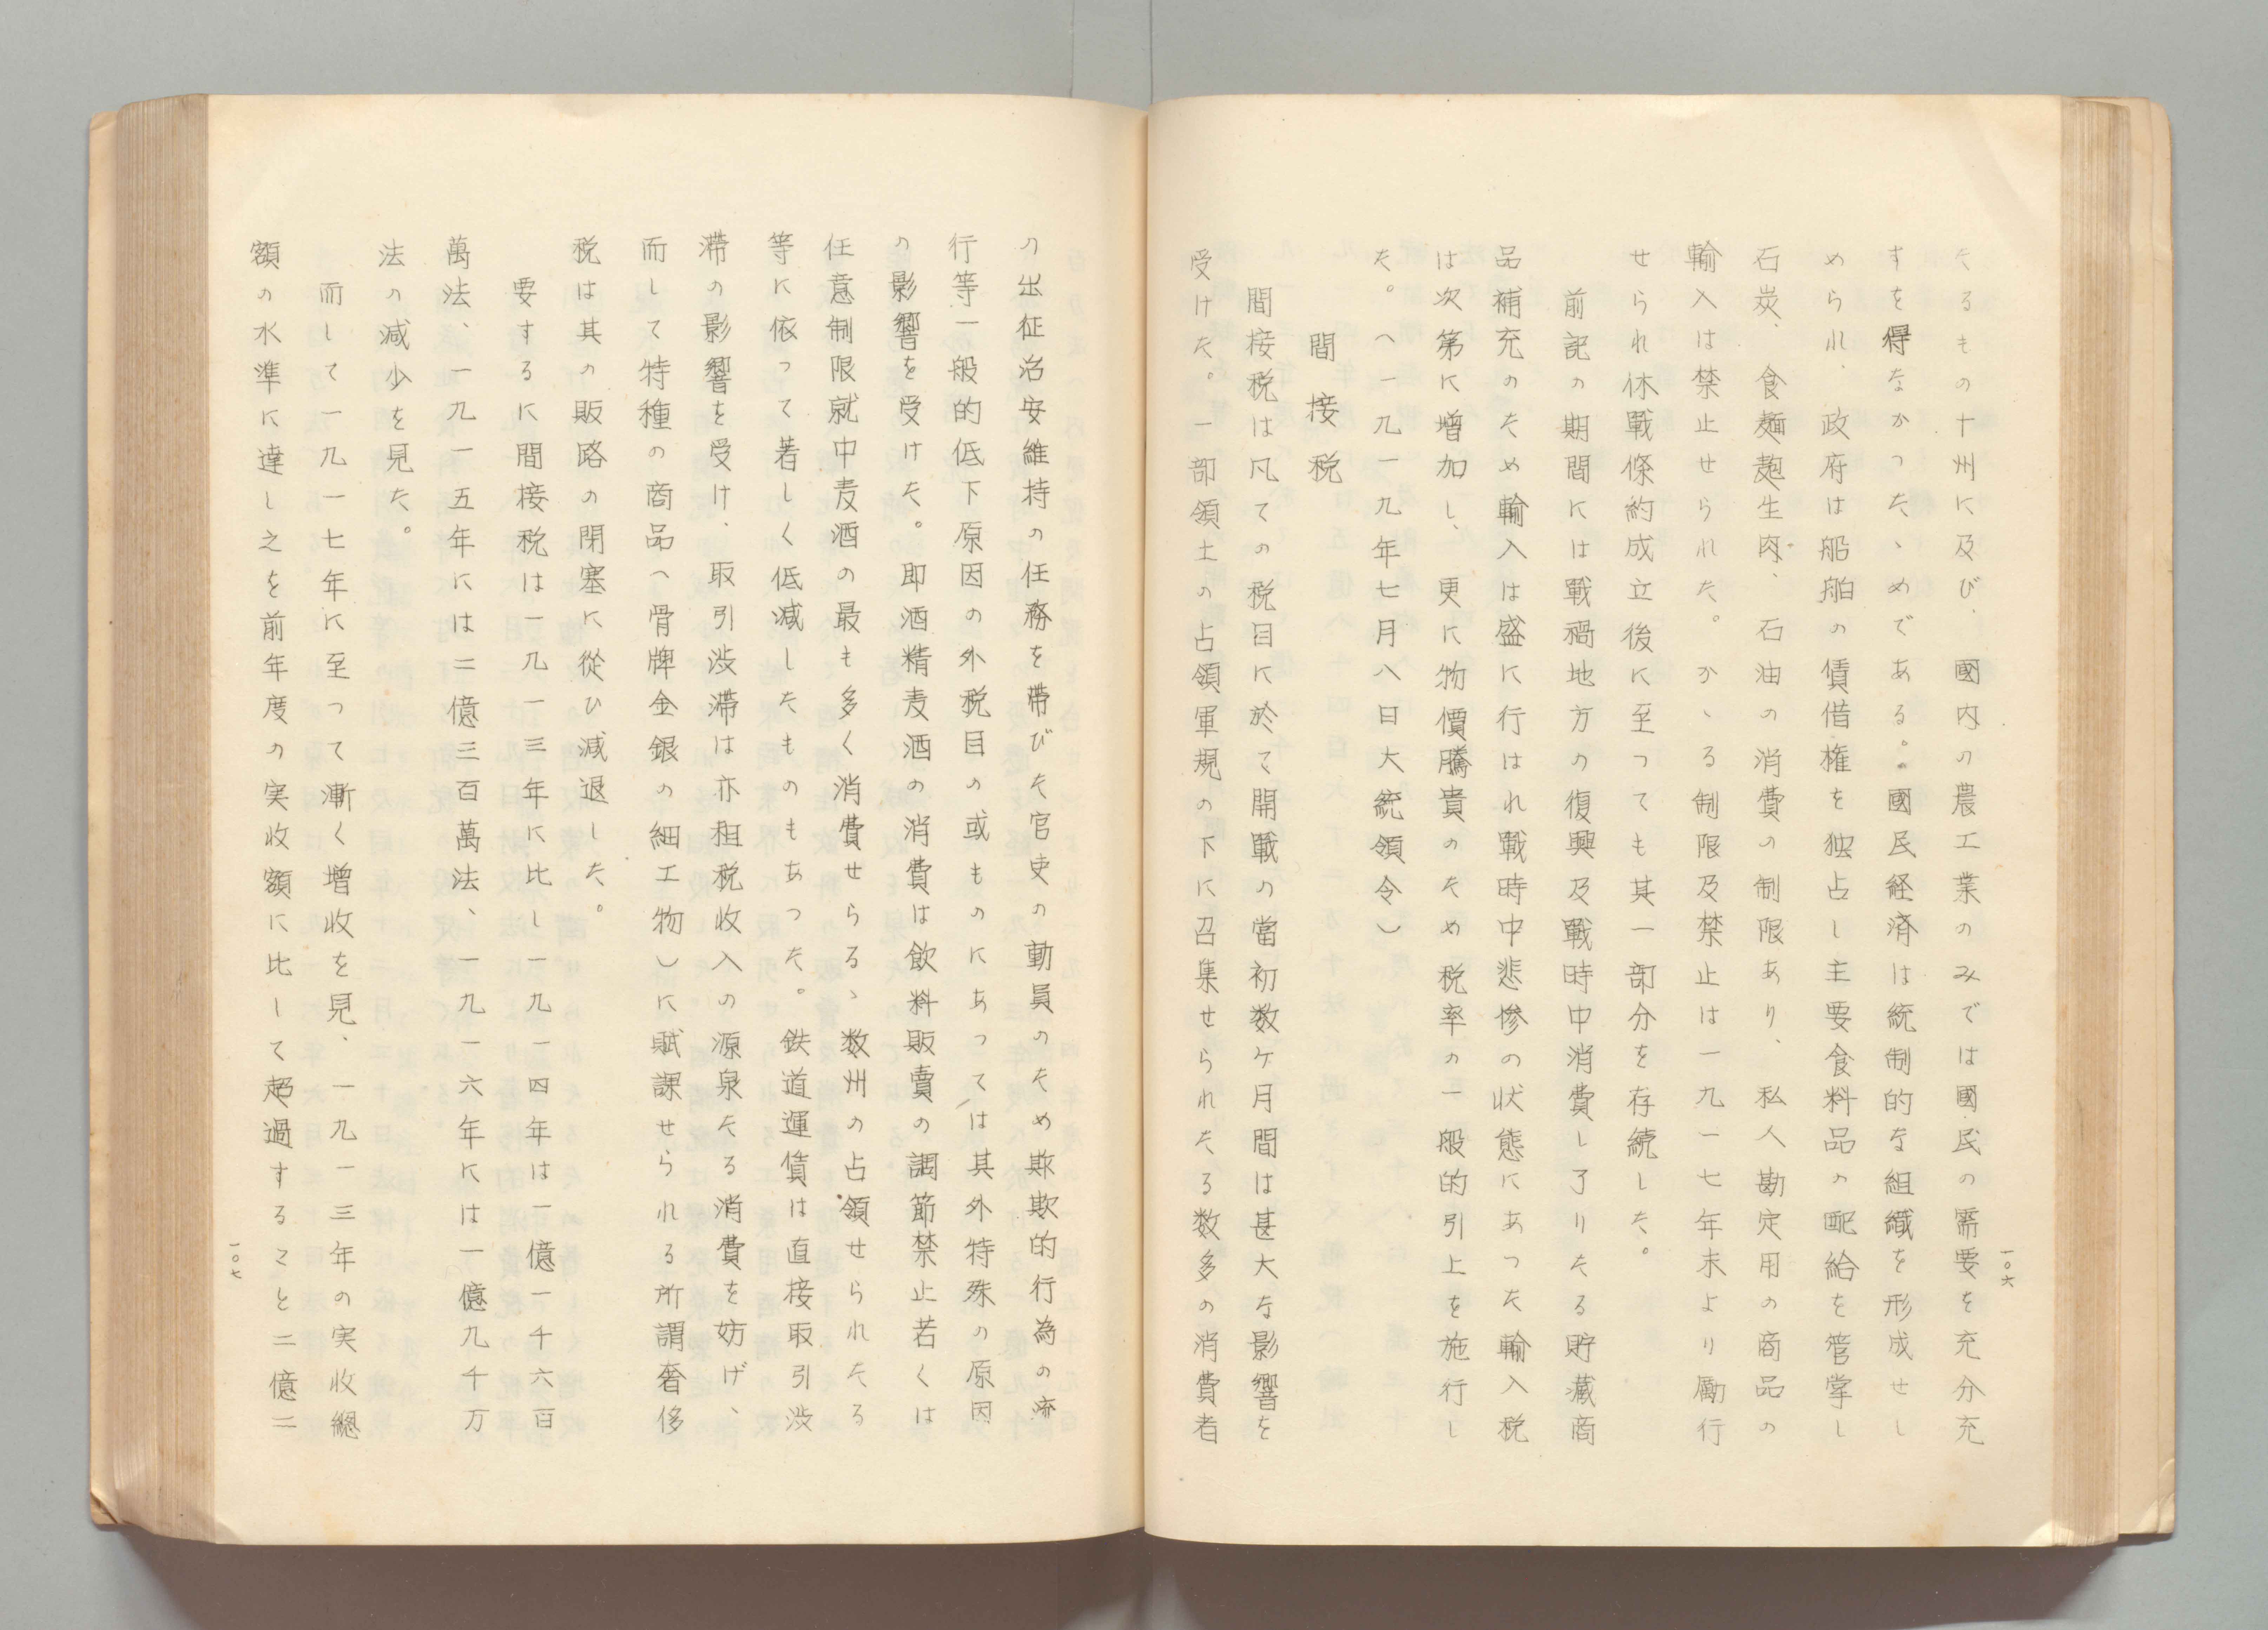 一〇六
たるもの十州に及び、國内の農工業のみでは國民の需要を充分充
すを得なかつた、めである。國民経済は統制的な組織を形成せし
められ、政府は船舶の賃借権を独占し主要食料品の配給を管掌し
石炭、食麺麭生肉、石油の消費の制限あり、私人勘定用の商品の
輸入は禁止せられた。かゝる制限及禁止は一九一七年末より勵行
せられ休戰條約成立後に至つても其一部分を存続した。
前記の期間には戰禍地方の復興及戰時中消費し了りたる貯藏商
品補充のため輸入は盛に行はれ戰時中悲惨の状態にあつた輸入税
は次第に増加し、更に物價騰貴のため税率の一般的引上を施行し
た。（一九一九年七月八日大統領令）
間接税
間接税は凡ての税目に於て開戰の當初数ヶ月間は甚大な影響を
受けた。一部領土の占領軍規の下に召集せられたる数多の消費者
の出征治安維持の任務を帯びた官吏の動員のため欺欺的行為の濟
行等一般的低下原因の外税目の或ものにあつては其外特殊の原因
の影響を受けた。即酒精麦酒の消費は飲料販賣の調節禁止若くは
任意制限就中麦酒の最も多く消費せらるゝ数州の占領せられたる
等に依つて若しく低減したものもあつた。鉄道運賃は直接取引渋
滞の影響を受け、取引渋滞は亦租税收入の源泉たる消費を妨げ、
而して特種の商品（骨牌金銀の細工物）に賦課せられる所謂奢侈
税は其の販路の閉塞に從ひ減退した。
要するに間接税は一九一三年に比し一九一四年は一億一千六百
萬法、一九一五年には二億三百萬法、一九一六年には一億九千万
法の減少を見た。
而して一九一七年に至つて漸く増收を見、一九一三年の実收總
額の水準に達し之を前年度の実收額に比して超過すること二億二
一〇七